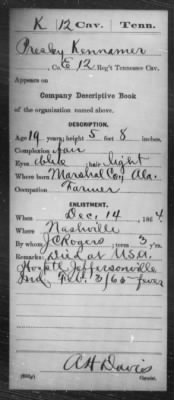 K | 12 Cav. | Tenn.
Presley Kennamer
Co E 12 Reg't Tennessee Cav.
Appears on
Company Descriptive Book
of the organization named above.
DESCRIPTION.
Age 19 years; height 5 feet 8 inches.
Complexion fair
Eyes blue ; hair light
Where born Marshal Co., Ala.
Occupation Farmer
ENLISTMENT.
When Dec. 14 , 1864
Where Nashville
By whom J C Rogers ; term 3 y'rs.
Remarks: Died at U.S.A.
Hosptl Jeffersonville
Ind. Feb. 3/65 fever
A H Davis
Copyist.